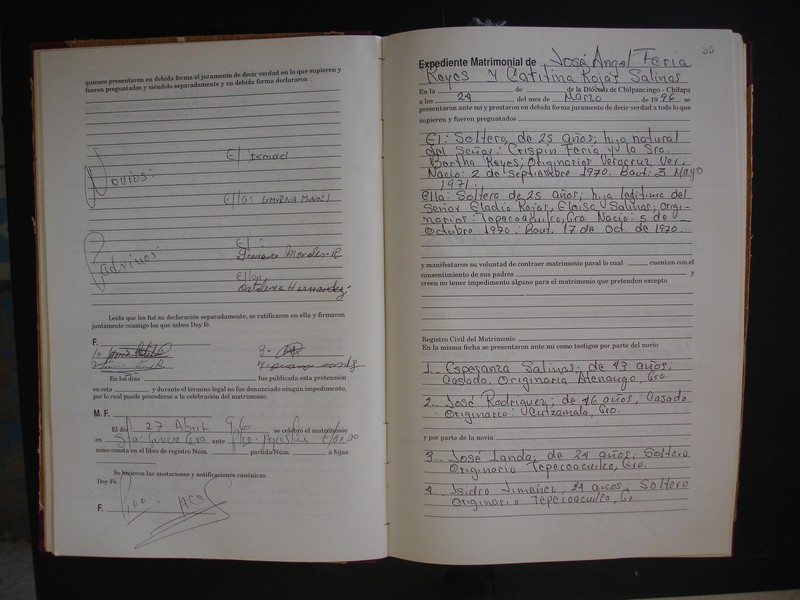 quienes presentaron en debida forma el juramento de decir verdad en lo que supieren y
fueren preguntados y siéndolo separadamente y en debida forma declararon :
El: Ismael
Novios:
Ella:
El :
Padrinos:
Morales R
Ella:
Hernandez
Leída que les fué su declaración separadamente, se ratificaron en ella y firmaron
juntamente conmigo los que saben Doy fé.
F.
En los días fue publicada esta pretensión
en esta y durante el término legal no fue denunciado ningún impedimento,
por lo cual puede procederse a la celebración del matrimonio.
M. F.
El día 27 Abril 96 se celebró el matrimonio
en ante
como consta en el libro de registro Núm. partida Núm. a fojas
Se hicieron las anotaciones y notificaciones canónicas.
Doy Fé.
F.
Expediente Matrimonial de José Angel Feria
Reyes Y Catitina Rojas Salinas
En la de de la Diócesis de Chilpancingo - Chilapa
a los 24 del mes de Marzo de 1996 se
presentaron ante mí y prestaron en debida forma juramento de decir verdad a todo lo que
supieren y fueren preguntados
El: Soltero, de 25 años; hijo natural
del Señor: Crispin Feria y la Sra.
Bertha Reyes; Originarios Veracruz, Ver.
Nacio: 2 de septiembre 1970. Baut: 3 Mayo
1971.
Ella: Soltera de 25 años; hija legitima del
Señor Eladio Rojas, Eloisa Salinas; Origi-
narios: Tepecoacuilco, Gro. Nacio: 5 de
Octubre 1970. Baut. 17 de Oct. de 1970.
y manifestaron su voluntad de contraer matrimonio para lo cual cuentan con el
consentimiento de sus padres y
creen no tener impedimento alguno para el matrimonio que pretenden excepto
Registro Civil del Matrimonio
En la misma fecha se presentaron ante mí como testigos por parte del novio
1. Esperanza Salinas; de 43 años,
Casada. Originaria Atenango, Gro.
2. José Rodríguez; de 46 años, Casado
Originario: Cutzamala, Gro.
y por parte de la novia
3. José Landa, de 24 años; Soltero
Originario Tepecoacuilco, Gro.
4. Isidro Jiménez, 24 años; Soltero
Originario Tepecoacuilco, G